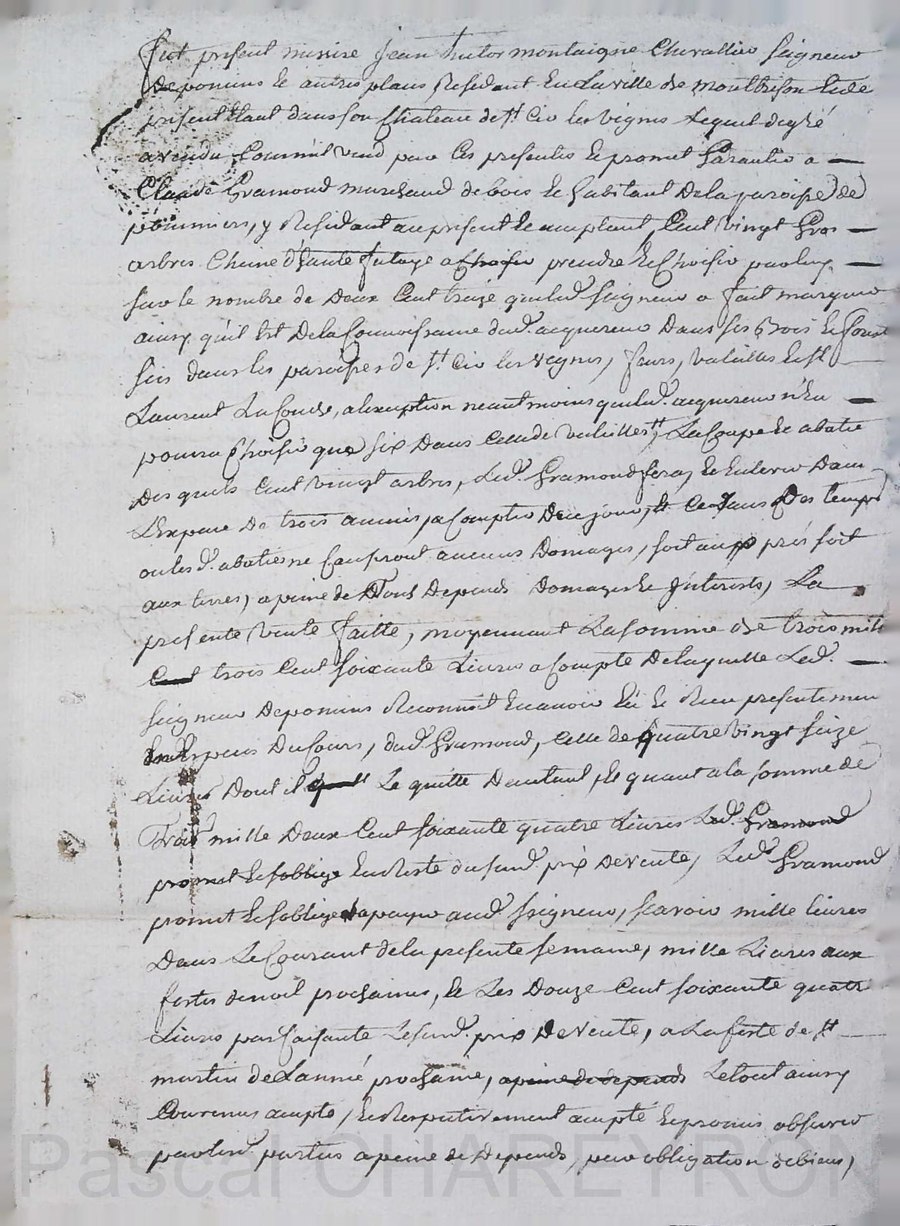 fut present messire jean hector montaigne chevallier seigneur
de pomins et autres places Residant en la ville de montbrison et de
present etant dans son chateau de st Cir les vignes lequel de gré
a vendu comme il vend par ces presentes et promet garantir a
Claude Gramond marchand de bois et habitant de la paroisse de
pommiers, y Residant au present et acceptant, Cent vingt gros
arbres chene d'haute futaye a choisir prendre et choisir par luy
sur le nombre de deux cent traize que led. seigneur a fait marquer
ainsy qu'il est de la connoissance dud. acquereur dans ses bois et forest
sis dans les paroisses de st Cir les vignes, feurs, valeilles et st
Laurent La Conche, a l'exeption neantmoins que led. acquereur n'en
pourra choisir que six dans celle de valeilles, La coupe et abatie
des quels cent vingt arbres, led. Gramond fera, et enlever dans
L'espace de trois années a compter de ce jour, et dans des temps
ou les d. abaties ne causeront aucuns domages, soit aux prés soit
aux terres, a peine de tous depends domages et jnterests, La
presente vente faitte, moyennant la somme de trois mille
cent trois cent soixante Livres a compte de laquelle led.
seigneur de pomins Reconnoit en avoir eû et Reçu presentement
en especes du cours, dud. Gramond, celle de quatre vingt seize
Livres dont il quitt le quitte d'autant, et quant a la somme de
Trois mille deux cent soixante quatre Livres Led. Gramond
promet et s'oblige en Reste dususd. prix de vente, led. Gramond
promet et s'oblige de payer aud. seigneur, scavoir mille livres
dans le courant de la presente semaine, mille Livres aux
festes de noel prochaines, et les douze cent soixante quatre
Livres parfaisante le susd. prix de vente, a la feste de st
martin de L'année prochaine, a peine de depends le tout ainsy
convenus accepté, et Respectivement accepté et promis observer
par lesd. parties a peine de depends, par obligation de biens,
Pascal CHAREYRON